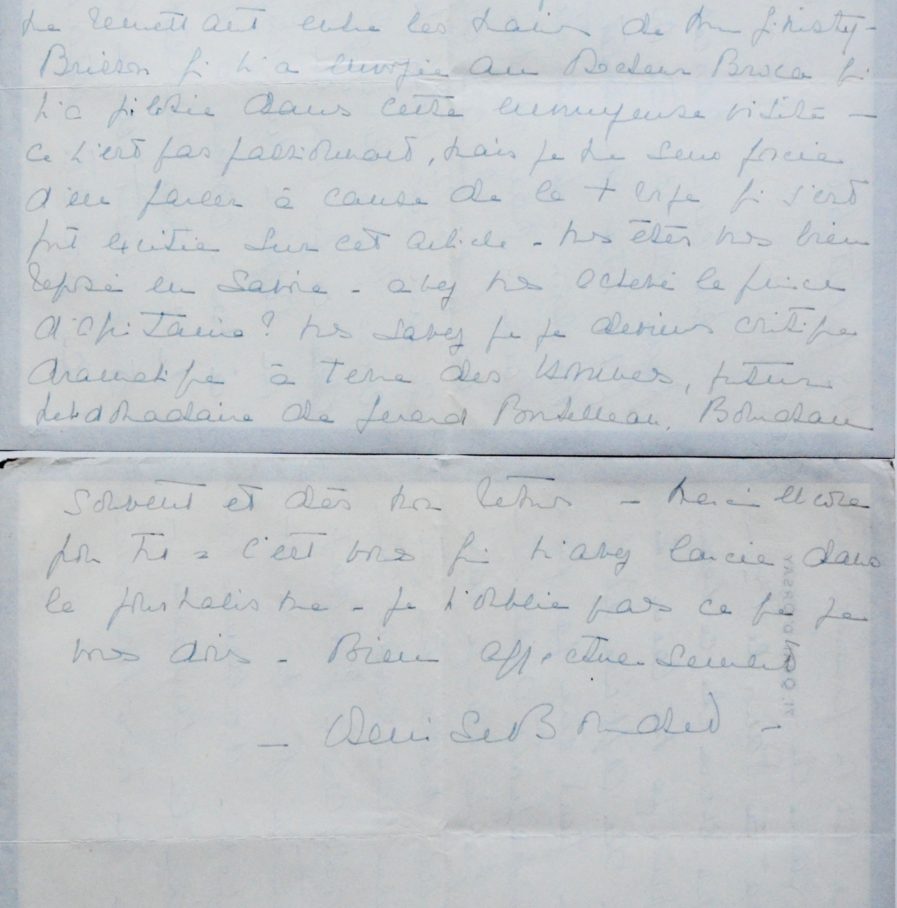 me remettant entre les mains de Mme Ginisty-
Brisson qui m'a envoyée au Docteur Broca qui
m'a pilotée dans cette ennuyeuse visite —
ce n'est pas passionnant, mais je me sens forcée
d'en parler à cause de la + qui s'est
fort excitée sur cet article - vous êtes vous bien
reposé en Savoie - avez vous achevé le prince
d'Aquitaine? vous savez que je deviens critique
dramatique à Terre des Hommes, futur
hebdomadaire de Gérard Boutelleau.
souvent et dès mon retour — merci encore
pour tout = c'est vous qui m'avez lancée dans
le journalisme - je n'oublie pas ce que je
vous dois - Bien affectueusement
— Denise Bourdet -